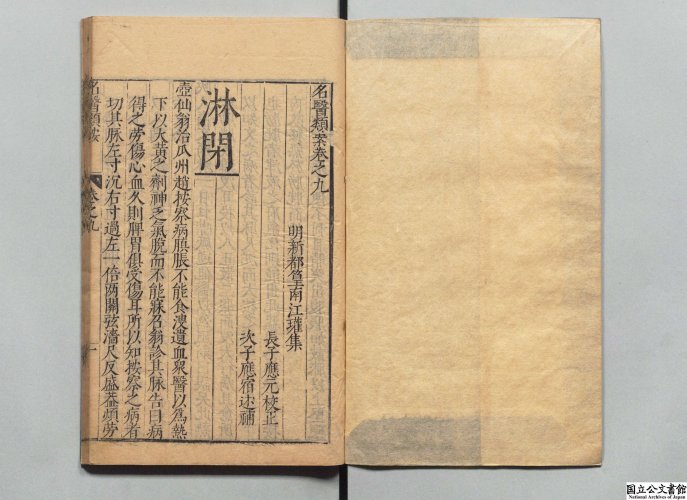 名醫類案卷之九
明新都篁南江瓘集
長子應元校正
次子應宿述補
淋閉
壺仙翁治瓜州趙按察病膹脹不能食溲遺血衆醫以爲熱
下以大黄之劑神乏氣脫而不能寐召翁診其脉告曰病
得之勞傷心血久則脾胃俱受傷耳所以知按察之病者
切其脉左寸沉右寸過左一倍兩關弦濇尺反盛葢煩勞
名醫類按
卷之九
一
国立公文書館
National Archives of Japan